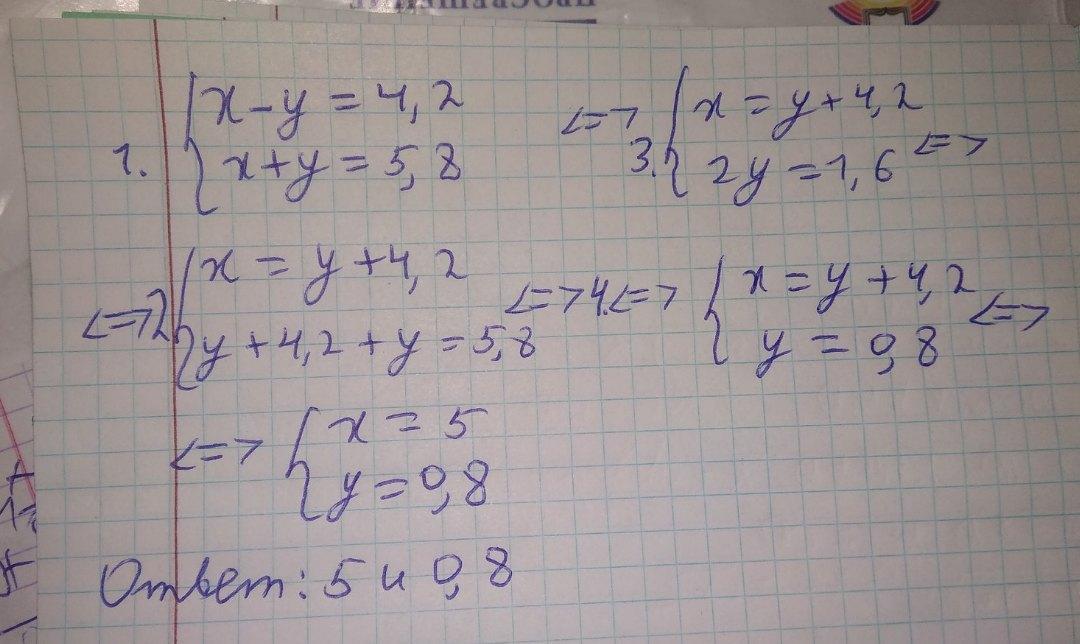 1. { x - y = 4,2
x + y = 5,8
<=> 2. { x = y + 4,2
y + 4,2 + y = 5,8
<=> 3. { x = y + 4,2
2y = 1,6 <=>
<=> 4. <=> { x = y + 4,2
y = 0,8 <=>
<=> { x = 5
y = 0,8
Ответ: 5 и 0,8